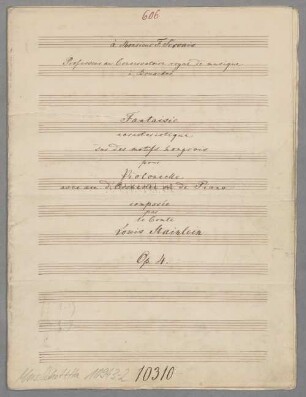 606
à Monsieur F. Servais
Professeur au Conservatoire royal de musique
à Bruxelles
Fantaisie
caractéristique
sur des motifs hongrois
pour
Violoncelle
avec acc. d'Orchestre ou de Piano
composée
par
le Comte
Louis
Op. 4.
10310